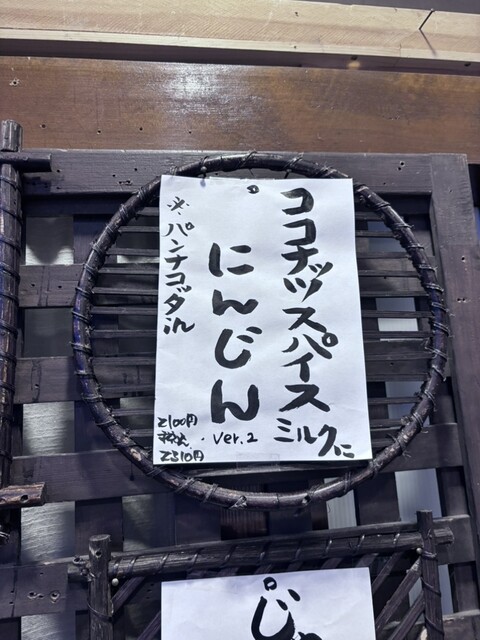 ココナッツスパイス
ミルクに
にんじん
ver.2
※パンナコッタin
2100円
税込
2310円
じ